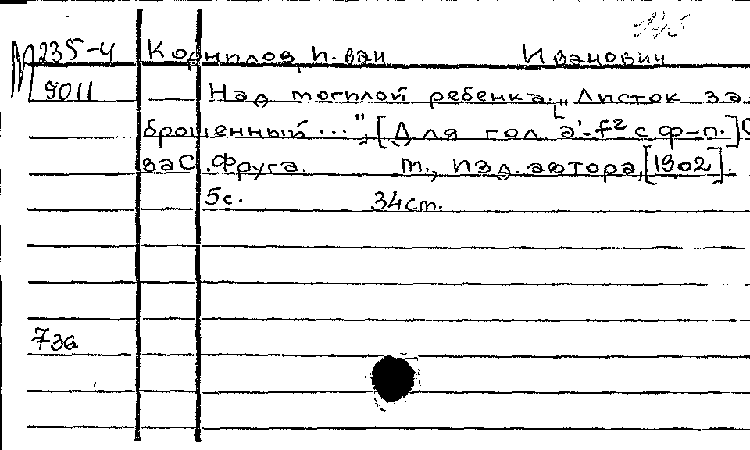 М235-4 Корнилов, Иван Иванович
9011 Над могилой ребенка. „Листок за-
брошенный...", [Для гол. a'-f² с ф-п.] С
ва С. Фруга. М., изд. автора, [1902].
5с. 34см.
73а